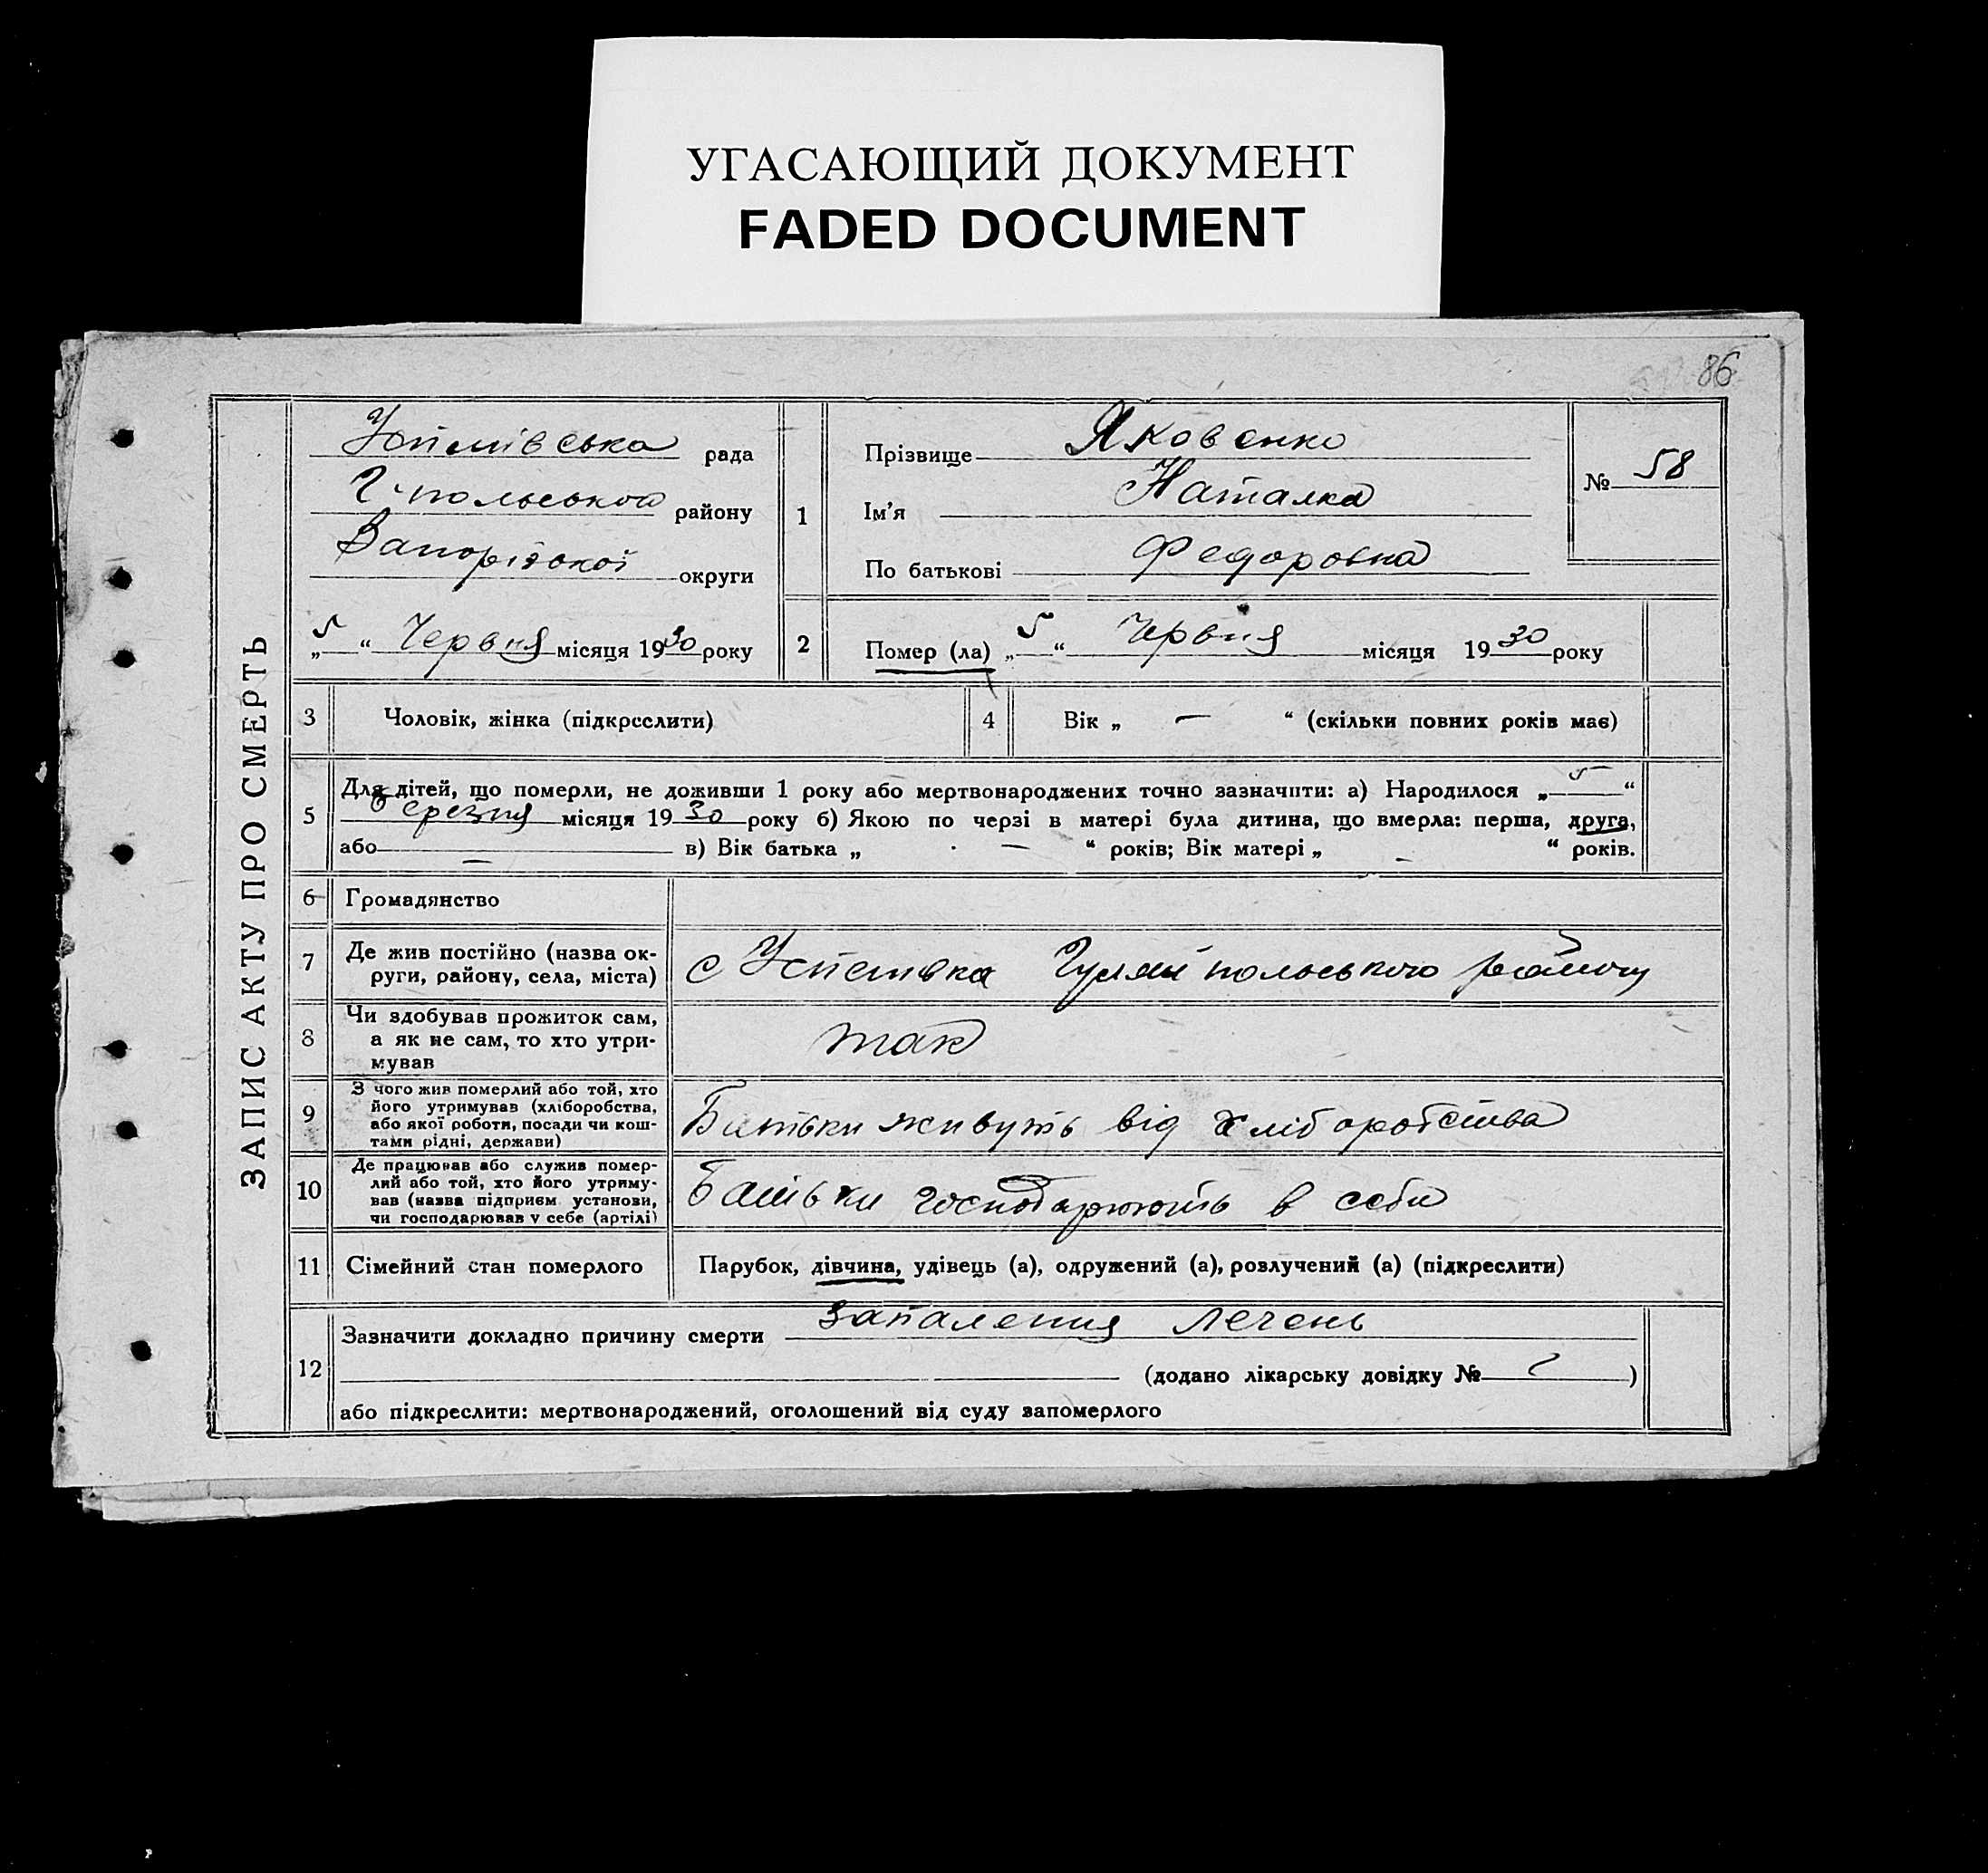 УГАСАЮЩИЙ ДОКУМЕНТ
FADED DOCUMENT
86
ЗАПИС АКТУ ПРО СМЕРТЬ
рада
Г-польського району
Запорізької округи
„5“ Червня місяця 1930 року
1
Прізвище Яковенко
Ім’я Наталка
По батькові Федоровна
№ 58
2
Помер (ла) „5“ Червня місяця 1930 року
3
Чоловік, жінка (підкреслити)
4
Вік „ — “ (скільки повних років має)
5
Для дітей, що померли, не доживши 1 року або мертвонароджених точно зазначити: а) Народилося „5“
березня місяця 1930 року б) Якою по черзі в матері була дитина, що вмерла: перша, друга,
або — в) Вік батька „ — “ років; Вік матері „ — “ років.
6
Громадянство
7
Де жив постійно (назва ок-
руги, району, села, міста)
с Успенівка Гуляйпольського району
8
Чи здобував прожиток сам,
а як не сам, то хто утри-
мував
так
9
З чого жив померлий або той, хто
його утримував (хліборобства,
або якої роботи, посади чи кош-
тами рідні, держави)
Батьки живуть від хліборобства
10
Де працював або служив помер-
лий або той, хто його утриму-
вав (назва підприєм. установи,
чи господарював у себе (артілі)
Батьки господарюють в себе
11
Сімейний стан померлого
Парубок, дівчина, удівець (а), одружений (а), розлучений (а) (підкреслити)
12
Зазначити докладно причину смерти запалення легень
(додано лікарську довідку № )
або підкреслити: мертвонароджений, оголошений від суду запомерлого